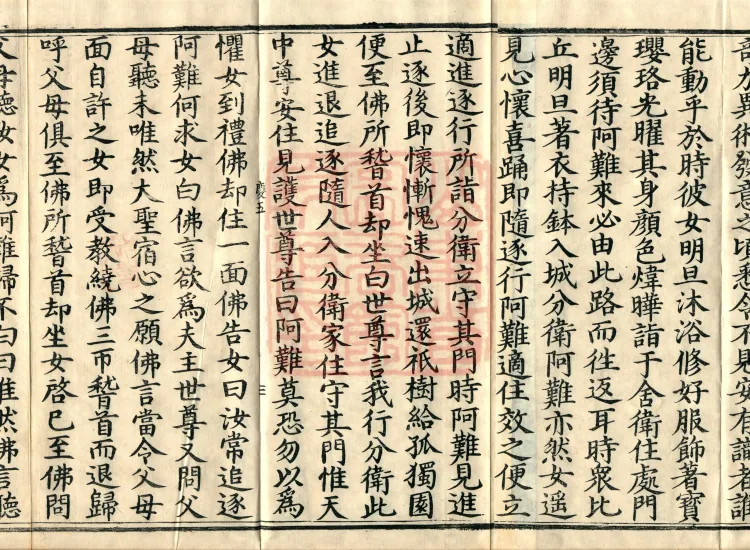 奇力異術發意之頃悉令不見安有識者誰
能動乎於時彼女明旦沐浴修好服飾著寶
瓔珞光曜其身顏色煒曄詣于舍衛住處門
邊須待阿難來必由此路而往返耳時衆比
丘明旦著衣持鉢入城分衛阿難亦然女遥
見心懷喜踊即隨逐行阿難適住效之便立
適進逐行所詣分衛立守其門時阿難見進
止逐後即懷慚愧速出城還祇樹給孤獨園
便至佛所稽首却坐白世尊言我行分衛此
女進退追逐隨人入分衛家住守其門惟天
中尊安住見護世尊告曰阿難莫恐勿以爲
慶五
三
懼女到禮佛却住一面佛告女曰汝常追逐
阿難何求女白佛言欲爲夫主世尊又問父
母聽未唯然大聖宿心之願佛言當令父母
面自許之女即受教繞佛三帀稽首而退歸
呼父母俱至佛所稽首却坐女啓已至佛問
父母聽汝女爲阿難歸不白曰唯然佛言聽